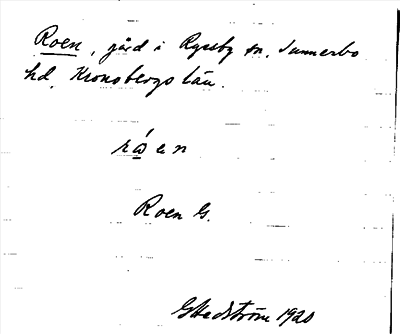 Roen, gård i Ryssby sn, Sunnerbo
hd, Kronobergs län.
råen
Roen G.
GHedström 1920